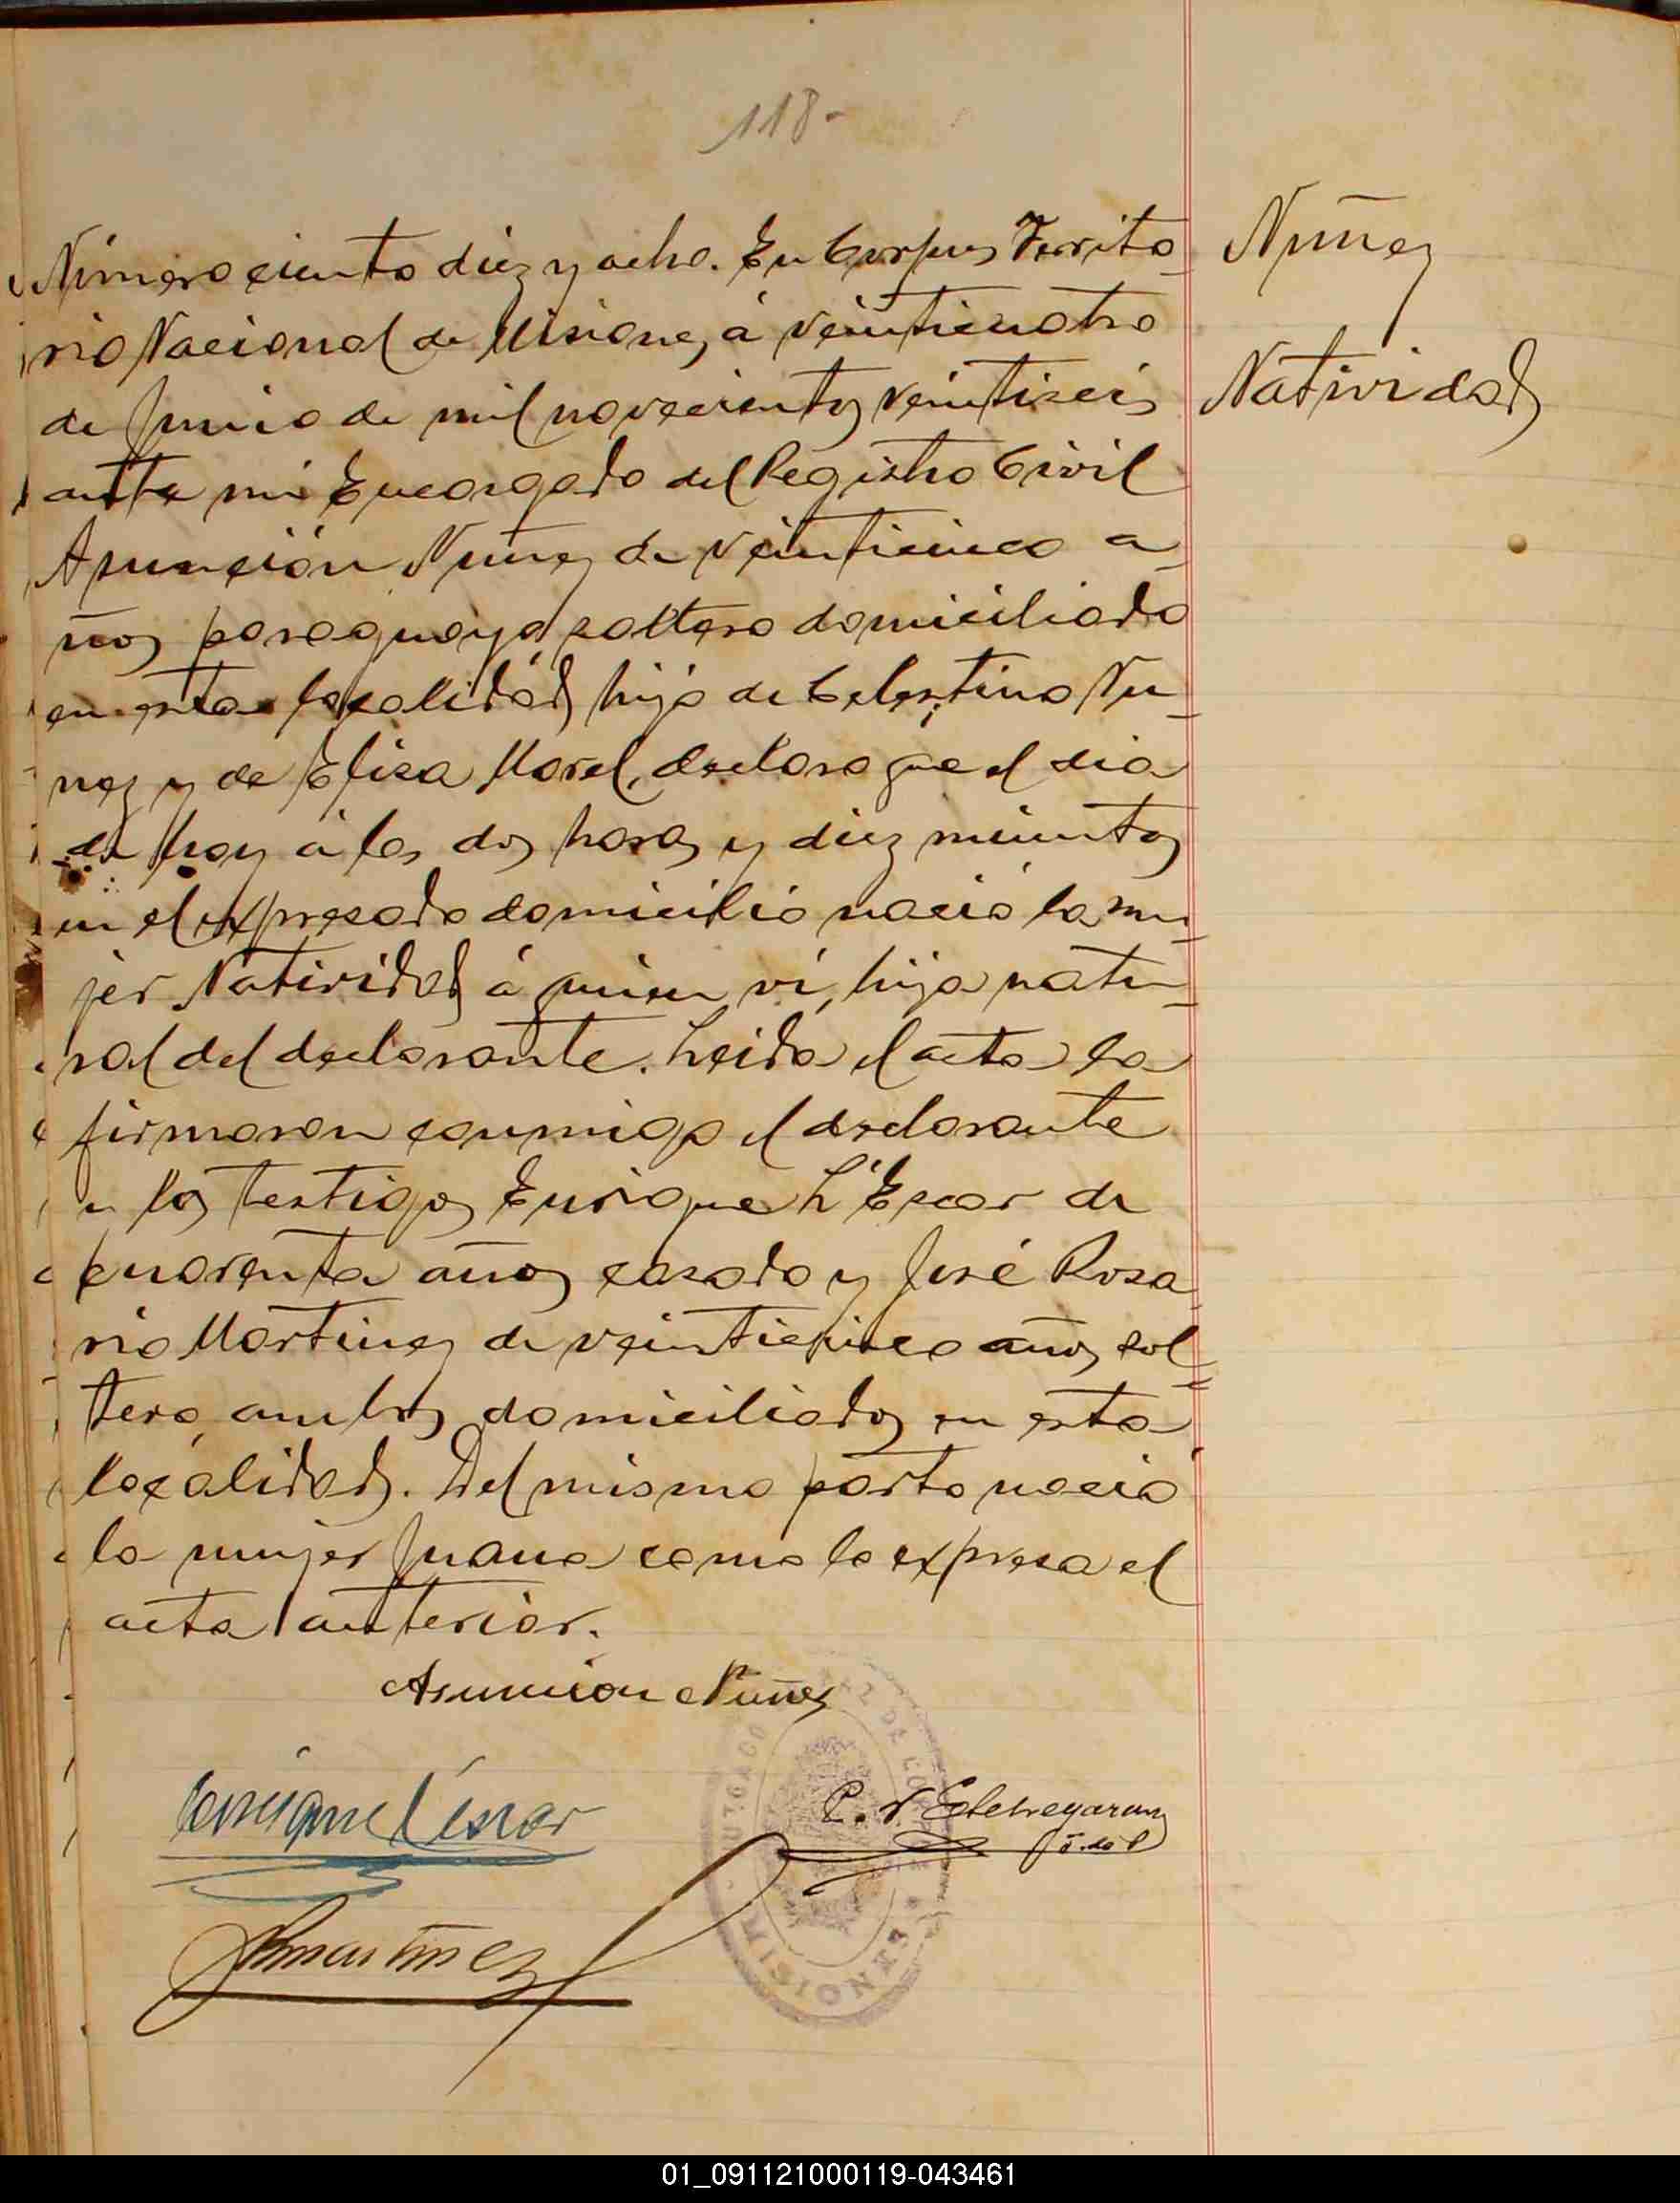 118-
Número ciento diez y ocho. En Corpus Territo-
rio Nacional de Misiones, á veinticuatro
de Junio de mil novecientos veintiseis
ante mi Encargado del Registro Civil
Asunción Nuñez de veinticinco a-
ños paraguayo, soltero domiciliado
en esta localidad, hijo de Celestino Nu-
nez y de Elisa Morel, declaro que el dia
de hoy á las dos horas y diez minutos
en el expresado domicilio nació la mu-
jer Natividad á quien vi, hija natu-
ral del declarante. Leida el acta la
firmaron conmigo el declarante
y los testigos Enrique L'Escar de
cuarenta años casado y José Rosa
rio Martinez de veinticinco años sol-
tero, ambos domiciliados en esta
localidad. Del mismo parto nació
la mujer Juana como lo expresa el
acta anterior.
Nuñez
Natividad
Asuncion Nuñez
Enrique L'escar
P. V. Etchegaray
Martinez
MISIONES
01_091121000119-043461